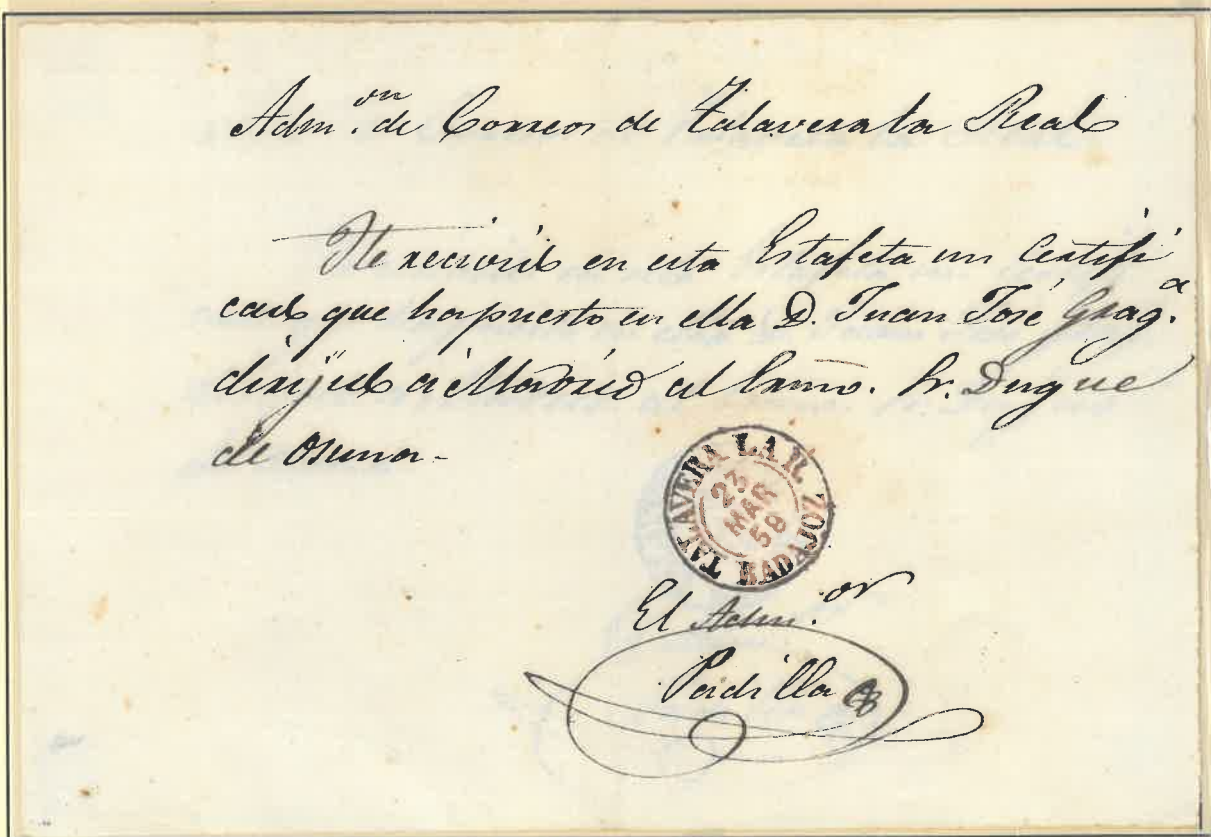 Adm.on de Correos de Talavera la Real
He recivido en esta Estafeta un Certifi
cado que ha puesto en ella D. Juan José Grag.a
dirijido á Madrid al Exmo. Sr. Duque
de Osuna-
TALAVERA LA R.
23
MAR
58
BADAJOZ
El Adm.or
Padilla